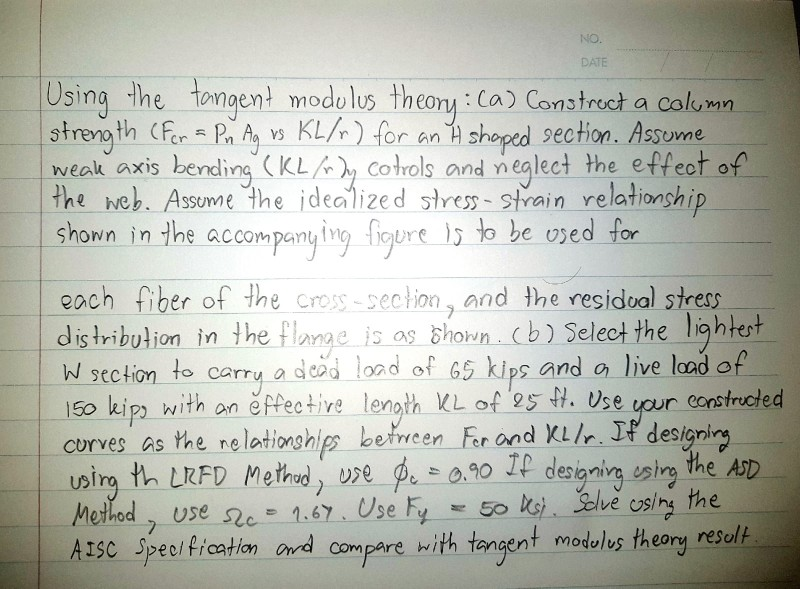 NO.
DATE
Using the tangent modulus theory: (a) Construct a column
strength (Fcr = Pn Ag vs KL/r) for an H shaped section. Assume
weak axis bending (KL/r)y cotrols and neglect the effect of
the web. Assume the idealized stress-strain relationship
shown in the accompanying figure is to be used for
each fiber of the cross-section, and the residual stress
distribution in the flange is as shown. (b) Select the lightest
W section to carry a dead load of 65 kips and a live load of
150 kips with an effective length KL of 25 ft. Use your constructed
curves as the relationships between Fcr and KL/r. If designing
using th LRFD Method, use ϕc = 0.90 If designing using the ASD
Method, use Ωc = 1.67. Use Fy = 50 ksi. Solve using the
AISC Specification and compare with tangent modulus theory result.